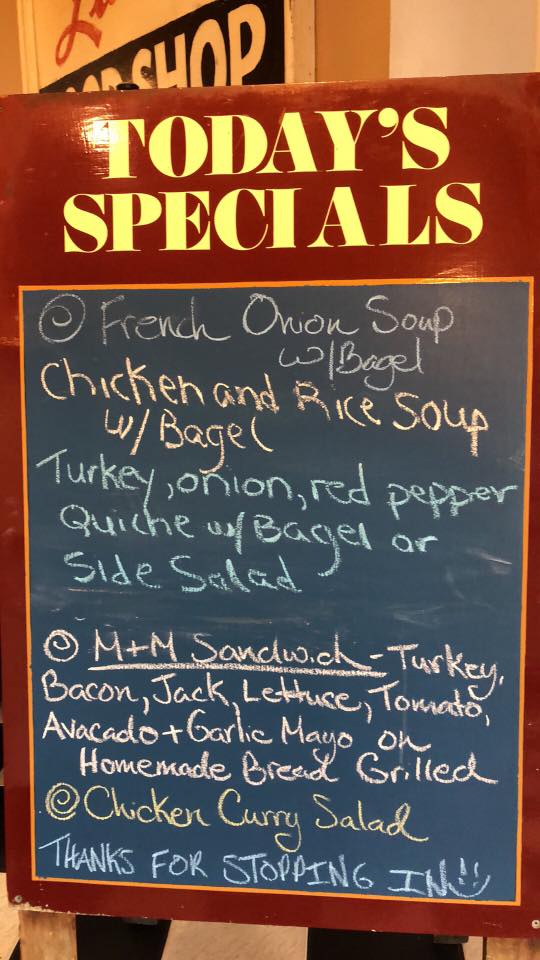 SHOP
TODAY'S
SPECIALS
French Onion Soup
w/Bagel
Chicken and Rice Soup
w/ Bagel
Turkey, onion, red pepper
Quiche w/Bagel or
Side Salad
M+M Sandwich - Turkey,
Bacon, Jack, Lettuce, Tomato,
Avacado + Garlic Mayo on
Homemade Bread Grilled
Chicken Curry Salad
THANKS FOR STOPPING IN